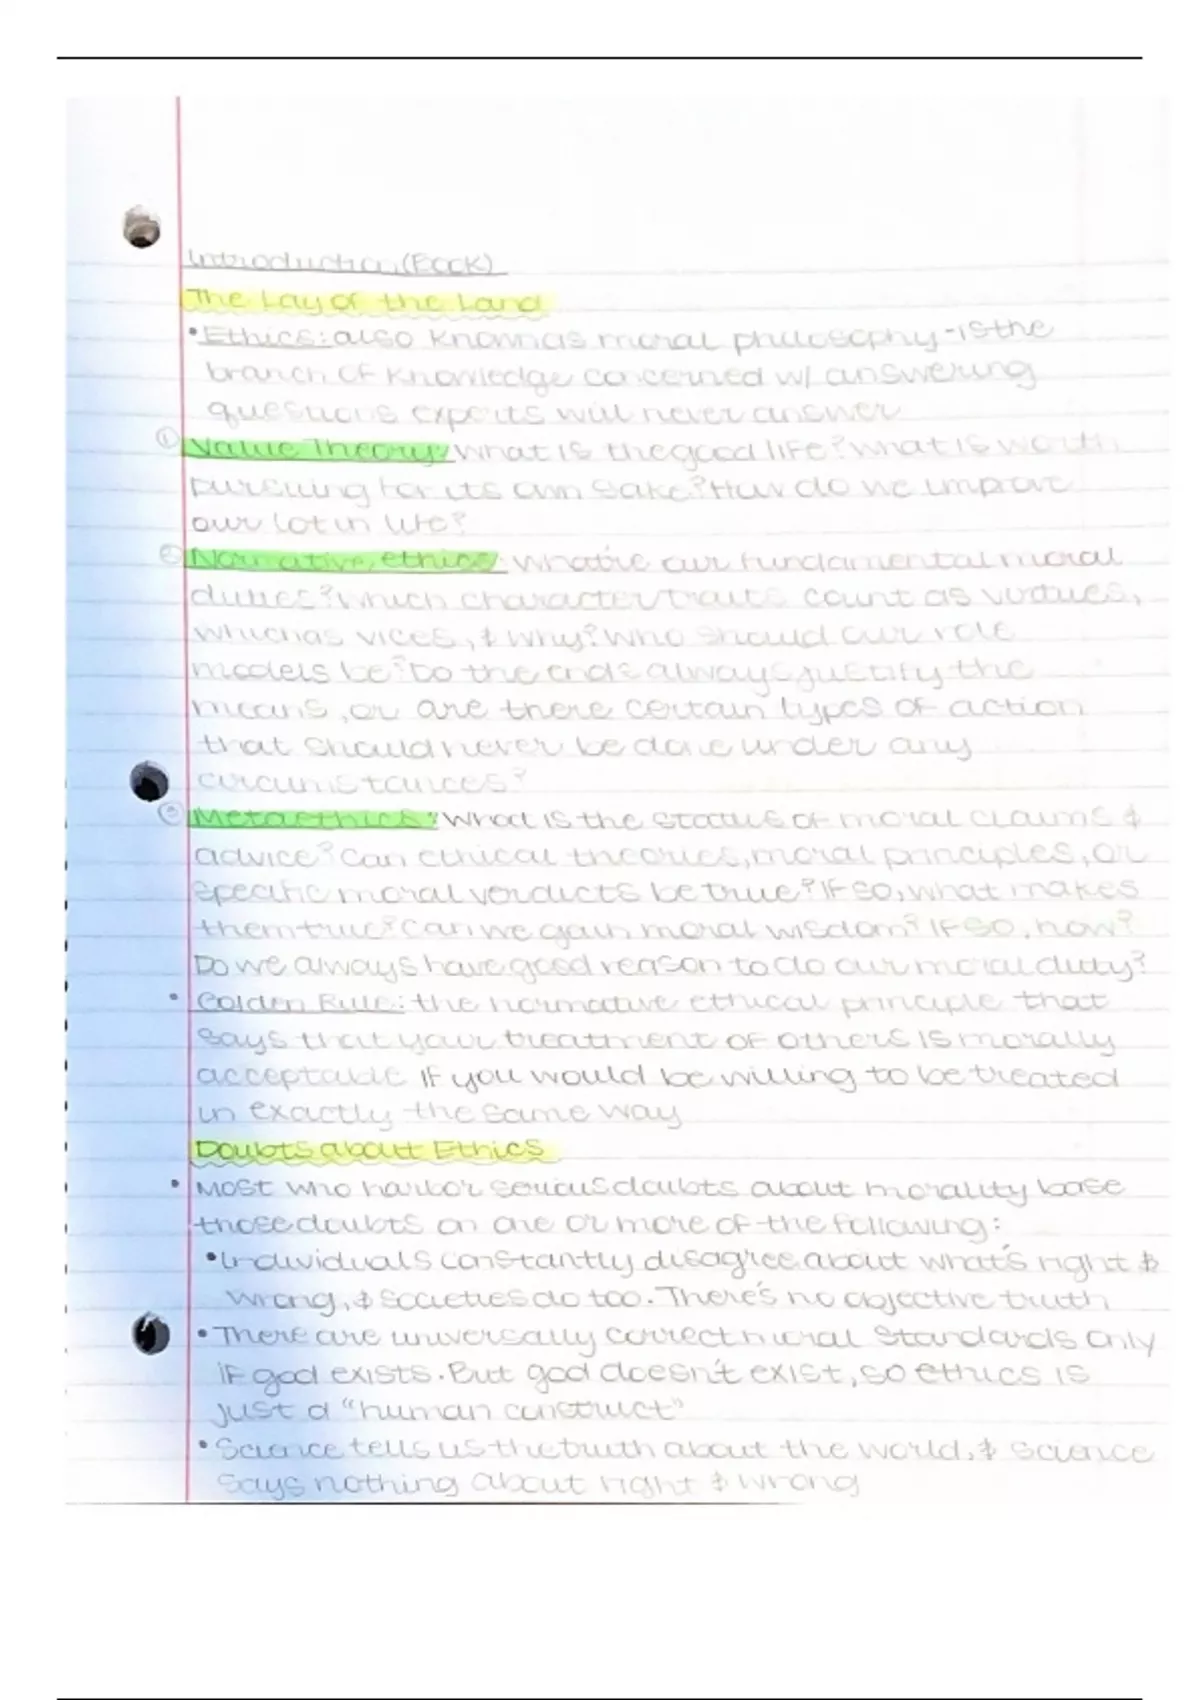 Introduction (Book)
The Lay of the Land
• Ethics: also known as moral philosophy - is the
branch of knowledge concerned w/ answering
questions experts will never answer
① Value Theory: What is the good life? What is worth
pursuing for its own sake? How do we improve
our lot in life?
② Normative ethics: What're our fundamental moral
duties? Which character traits count as virtues,
which as vices, & why? Who should our role
models be? Do the ends always justify the
means, or are there certain types of action
that should never be done under any
circumstances?
③ Metaethics: What is the status of moral claims &
advice? Can ethical theories, moral principles, or
specific moral verdicts be true? If so, what makes
them true? Can we gain moral wisdom? If so, how?
Do we always have good reason to do our moral duty?
• Golden Rule: the normative ethical principle that
says that your treatment of others is morally
acceptable if you would be willing to be treated
in exactly the same way
Doubts about Ethics
• Most who harbor serious doubts about morality base
those doubts on one or more of the following:
• Individuals constantly disagree about what's right &
wrong, & societies do too. There's no objective truth
• There are universally correct moral standards only
if god exists. But god doesn't exist, so ethics is
just a "human construct"
• Science tells us the truth about the world, & science
says nothing about right & wrong